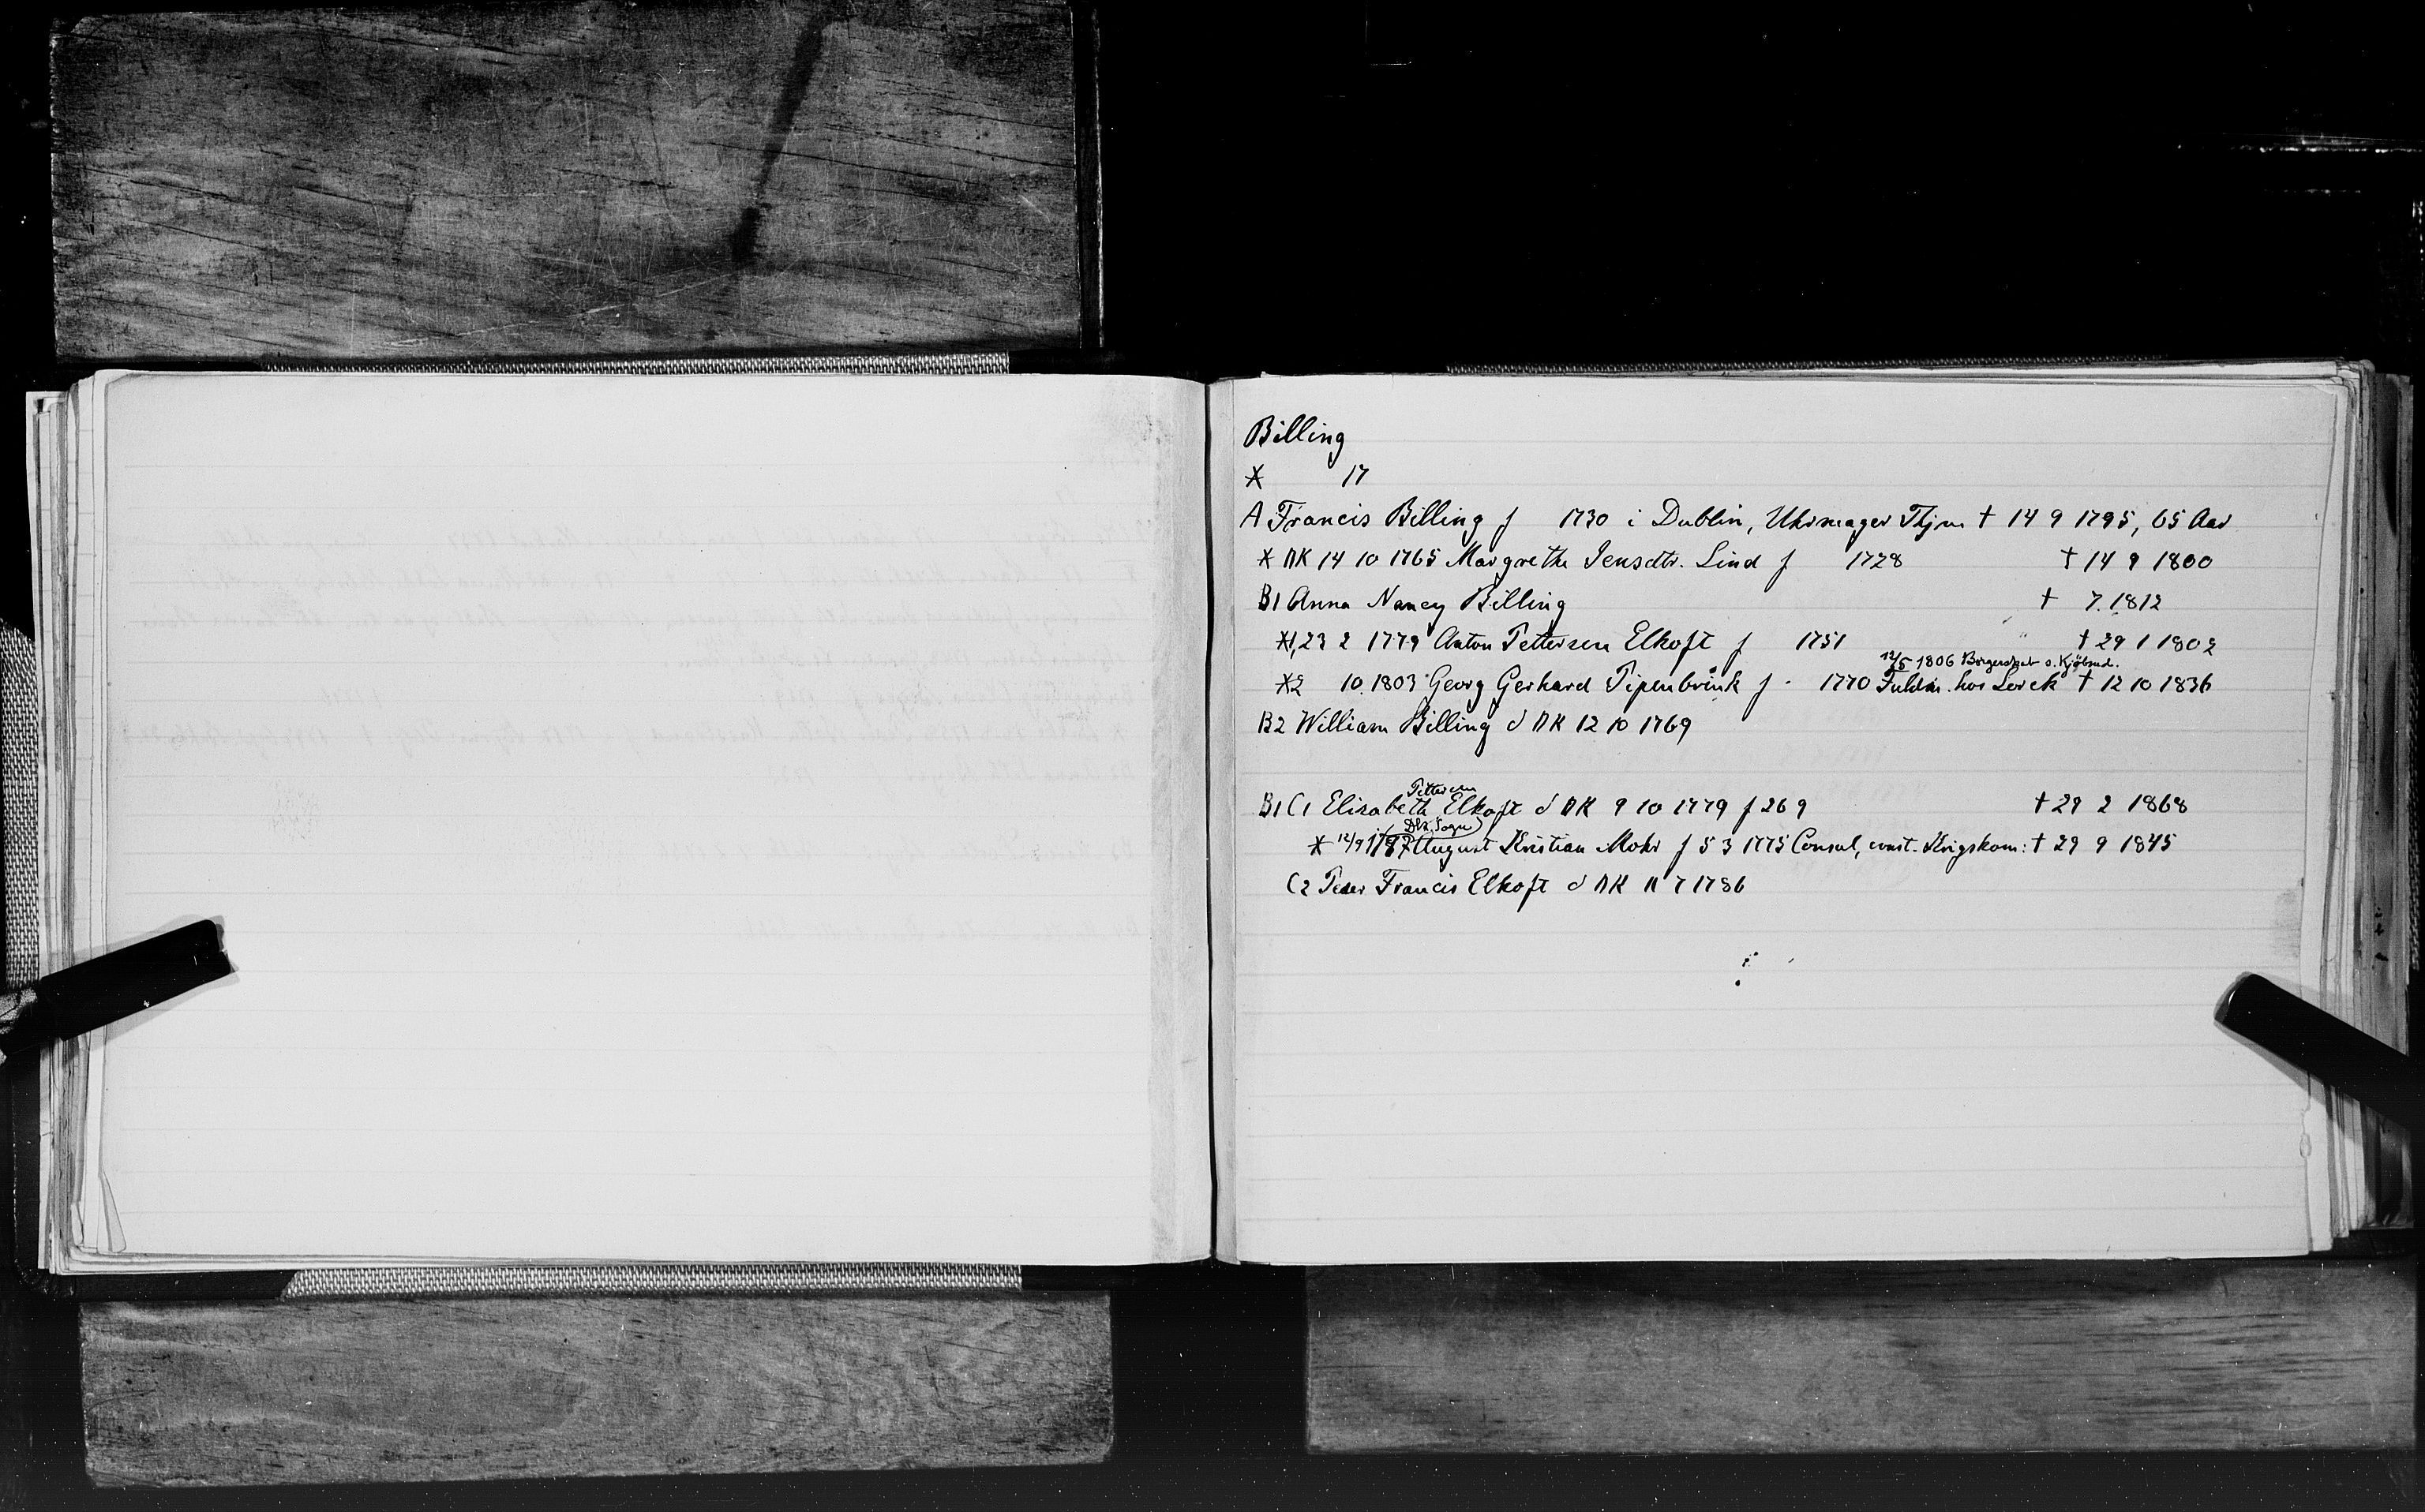 Billing
* 17
A Francis Billing f 1730 i Dublin, Uhrmager Thjm † 14 9 1795, 65 Aar
* DK 14 10 1765 Margrethe Jensdtr. Lind f 1728 † 14 9 1800
B1 Anna Nancy Billing † 7. 1812
*1, 23 2 1779 Anton Pettersen Elkoft f 1751 † 29 1 1802
12/5 1806 Borgerskab s. Kjøbmd.
*2 10. 1803 Georg Gerhard Pipenbrink f 1770 Fuldm. hos Lorck † 12 10 1836
B2 William Billing d DK 12 10 1769
Pettersen
B1 C1 Elisabeth Elkoft d DK 9 10 1779 f 26 9 † 29 2 1868
DK, Sogn
* 12/9 1797 August Kristian Mohr f 5 3 1775 Consul, const. Krigskom: † 29 9 1845
C2 Peter Francis Elkoft d DK 11 7 1786